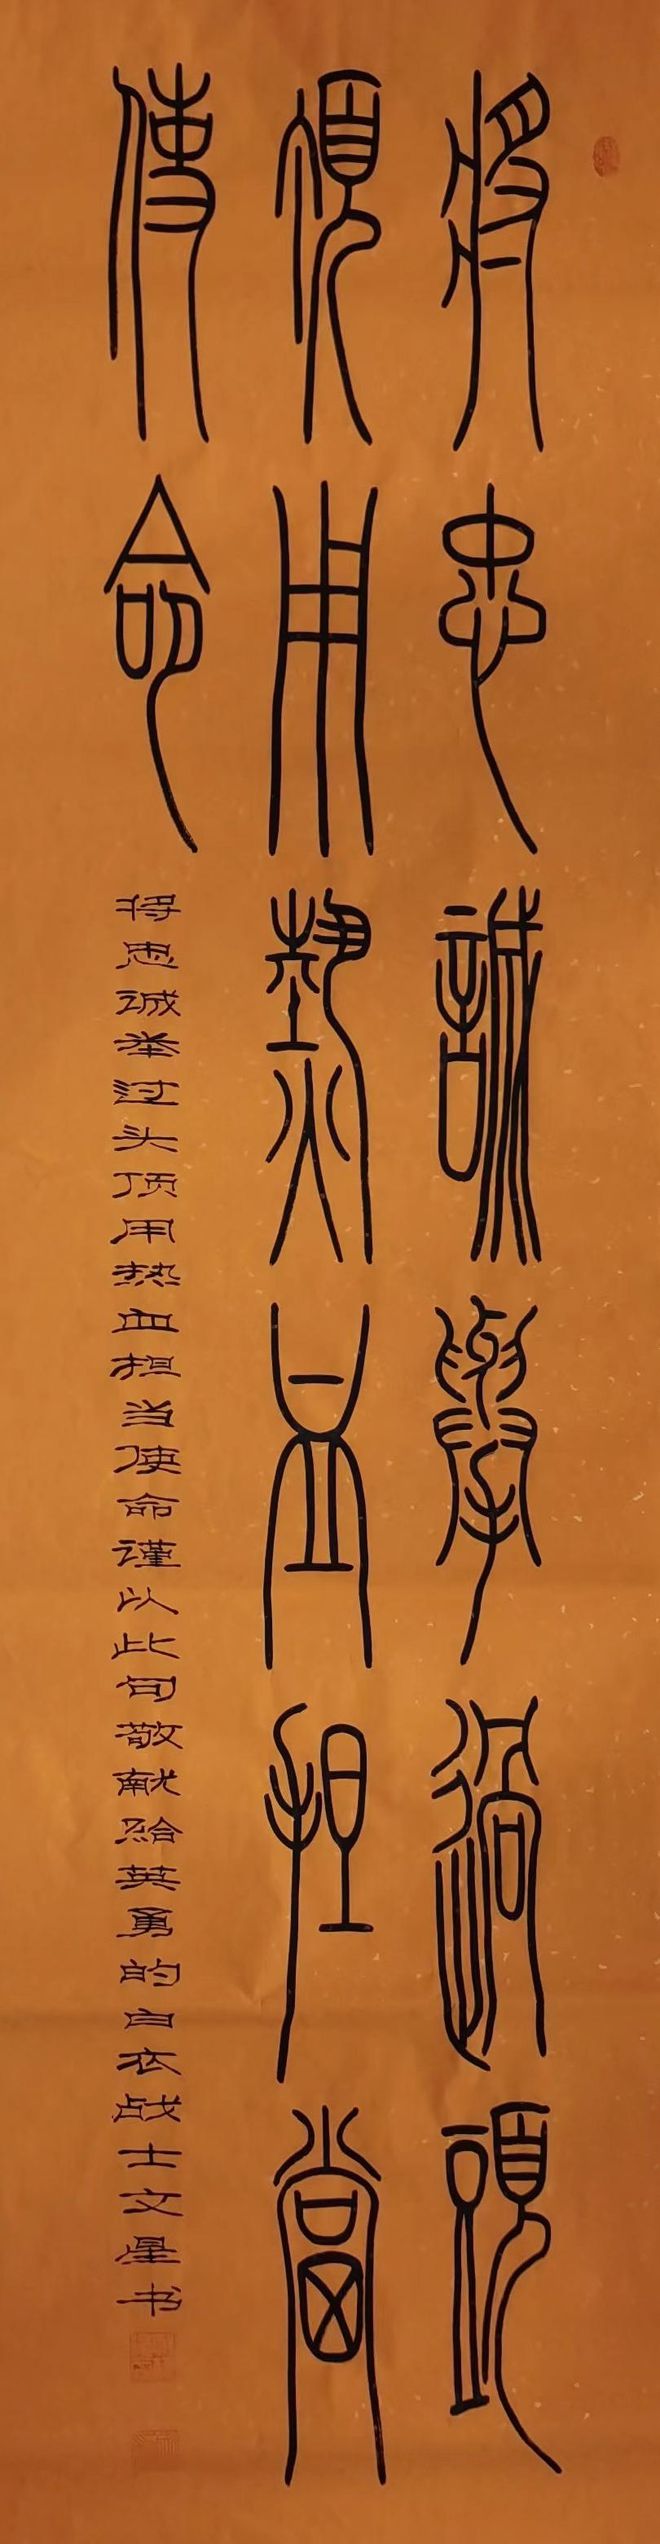 將忠誠舉過頭
頂用熱血担當
使命
将忠诚举过头顶用热血担当使命谨以此句敬献给英勇的白衣战士文星书